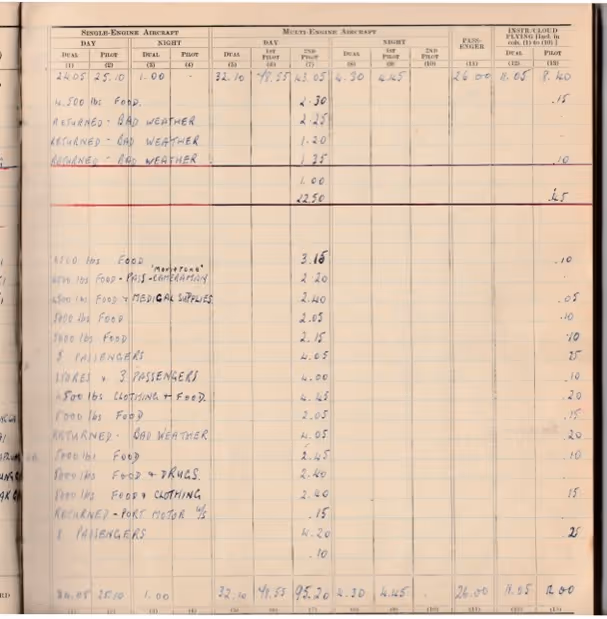 SINGLE-ENGINE AIRCRAFT MULTI-ENGINE AIRCRAFT PASS-ENGER INSTR/CLOUD FLYING [Incl. in cols. (1) to (10)]
DAY NIGHT DAY NIGHT
DUAL PILOT DUAL PILOT DUAL 1ST PILOT 2ND PILOT DUAL 1ST PILOT 2ND PILOT DUAL PILOT
(1) (2) (3) (4) (5) (6) (7) (8) (9) (10) (11) (12) (13)
24.05 25.10 1.00 - 32.10 48.55 43.05 4.30 4.45 26.00 11.05 8.40
4,500 lbs FOOD. 2.30 .15
RETURNED - BAD WEATHER 2.25
RETURNED - BAD WEATHER 1.20
RETURNED - BAD WEATHER 1.35 .10
1.00
22.50 .45
lbs FOOD 3.15 .10
"MOVIETONE"
lbs FOOD - PASS - CAMERAMAN 2.20
lbs FOOD + MEDICAL SUPPLIES 2.40 .05
lbs FOOD 2.05 .10
lbs FOOD 2.15 .10
8 PASSENGERS 4.05 25
STORES + 3 PASSENGERS 4.00 .10
4500 lbs CLOTHING + FOOD. 4.45 .20
5000 lbs FOOD 2.05 .15
RETURNED - BAD WEATHER 4.05 .20
5000 lbs FOOD 2.45 .10
5000 lbs FOOD + DRUGS. 2.40
5000 lbs FOOD + CLOTHING 2.40 15
RETURNED - PORT MOTOR U/S .15
8 PASSENGERS 4.20 25
.10
25.10 1.00 32.10 48.55 95.20 4.30 4.45 . 26.00 11.05 12.00
(1) (2) (3) (4) (5) (6) (7) (8) (9) (10) (11) (12) (13)